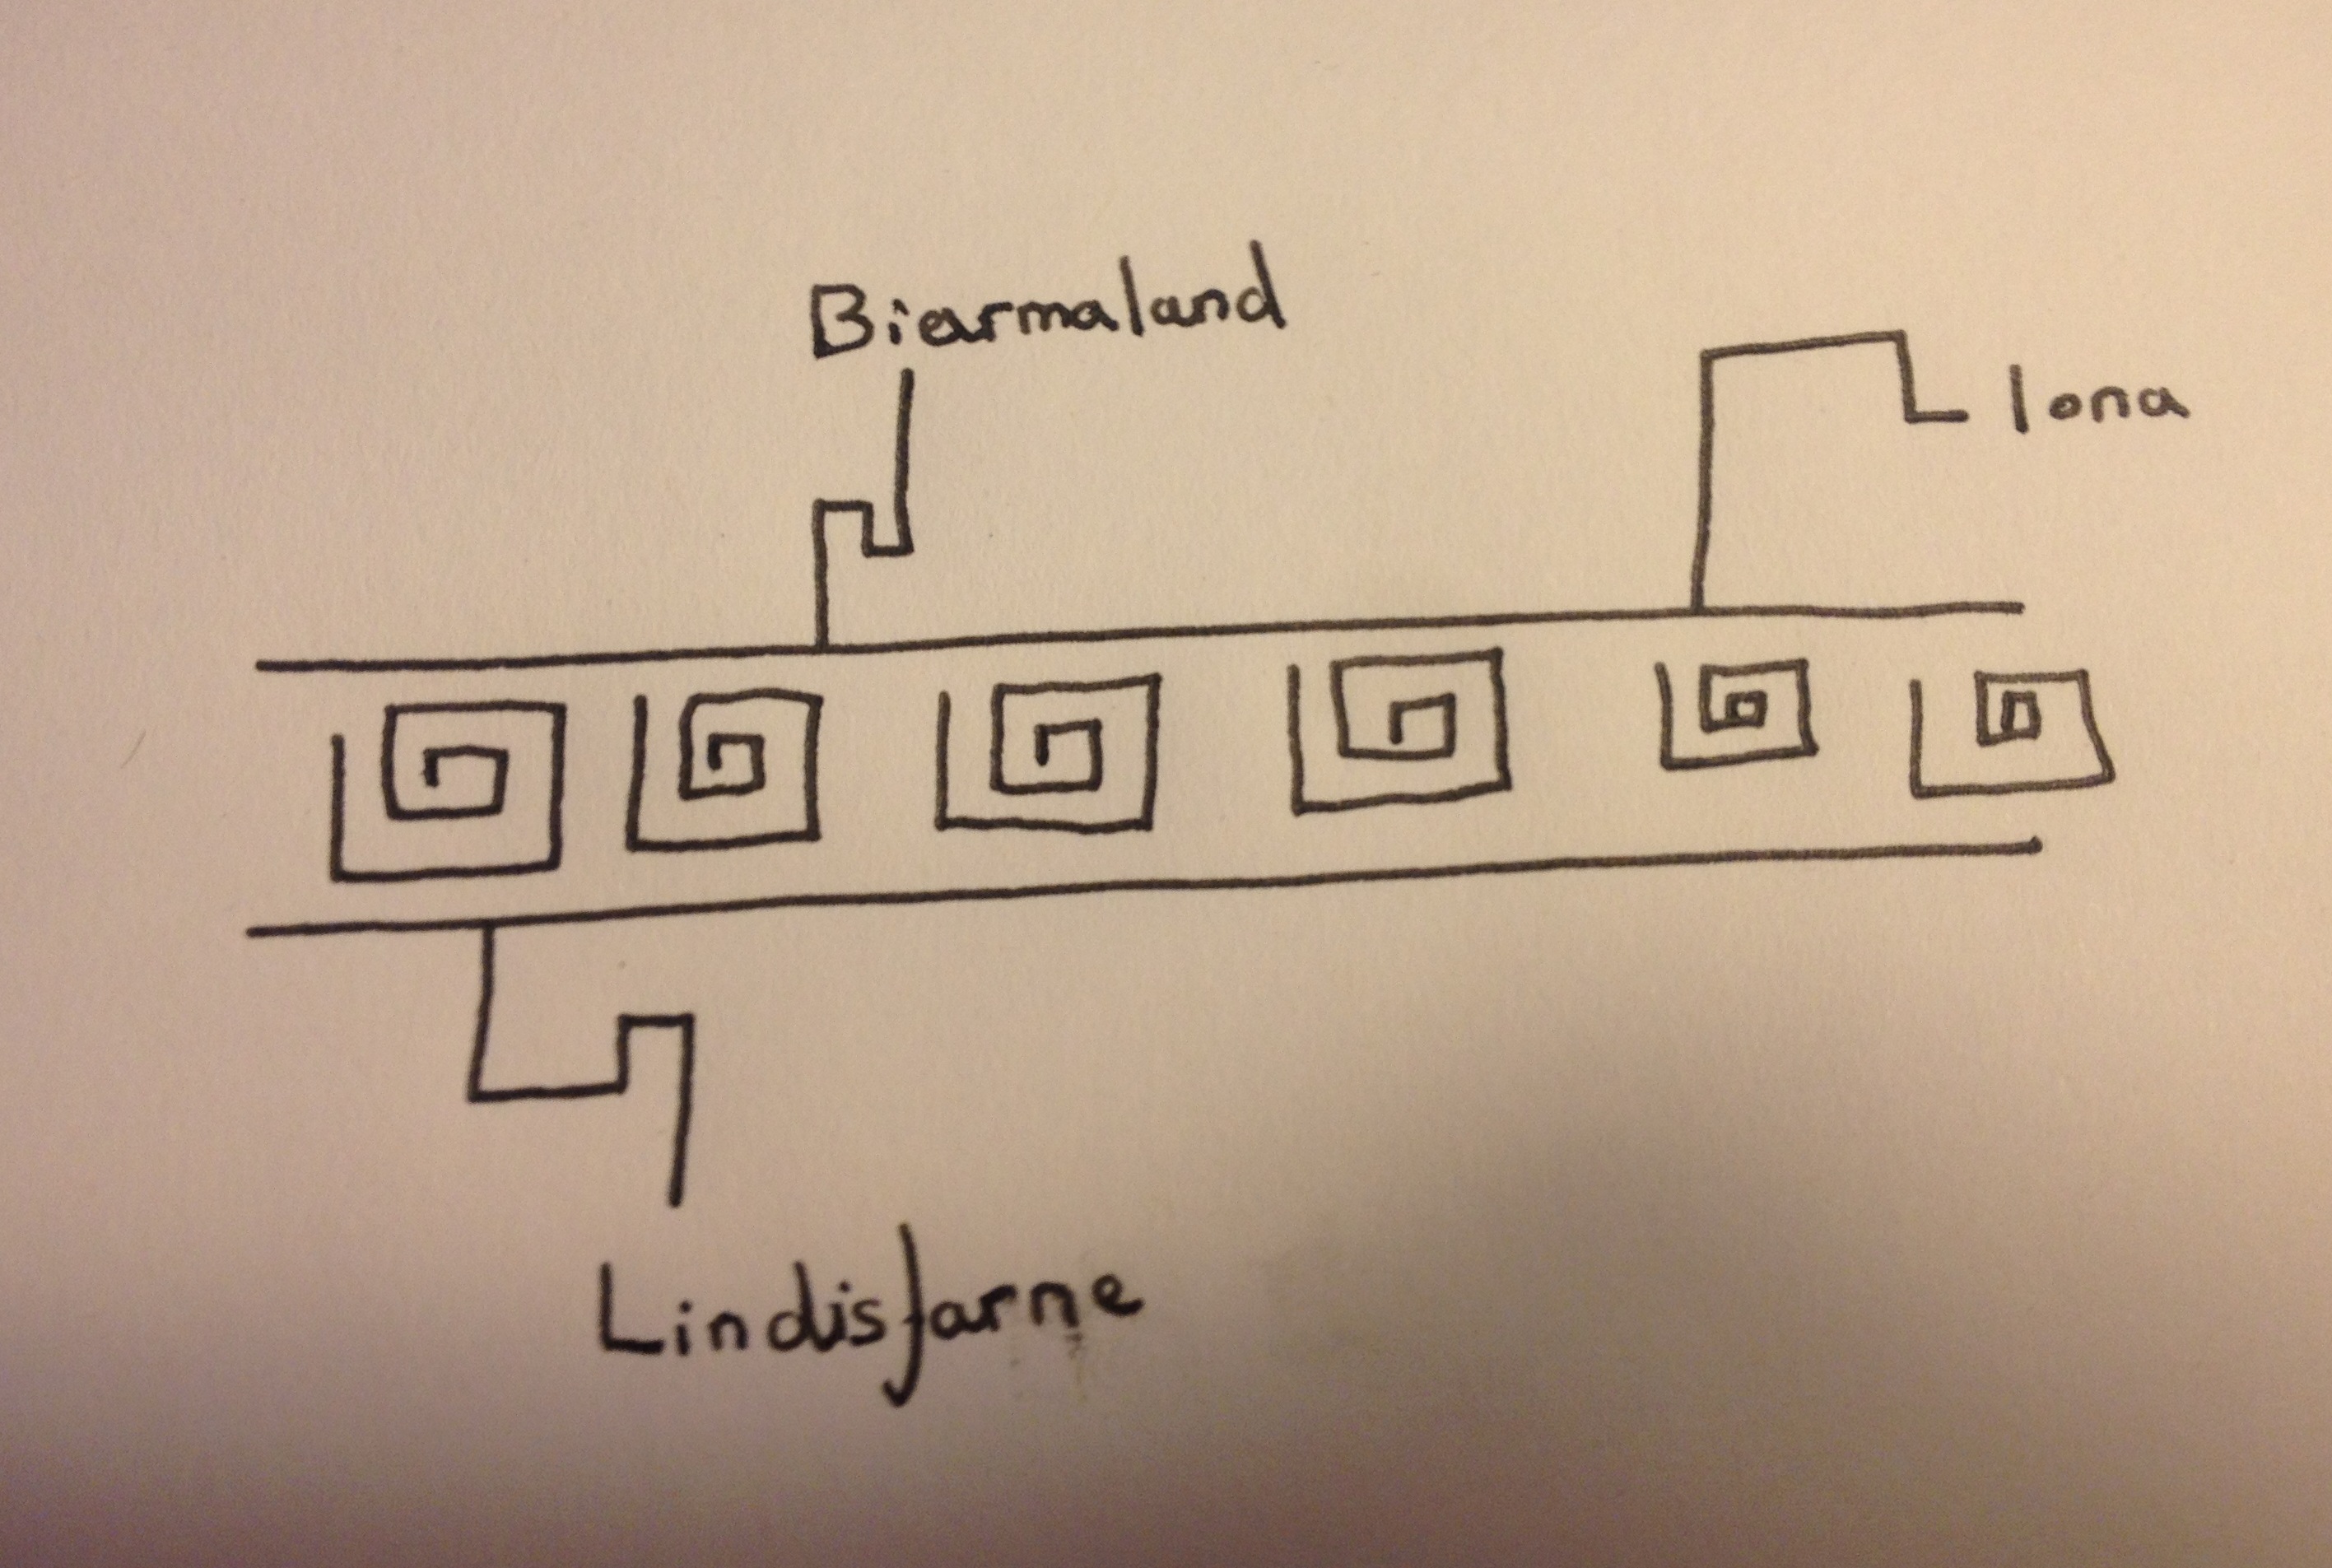 Biarmaland
Iona
Lindisfarne